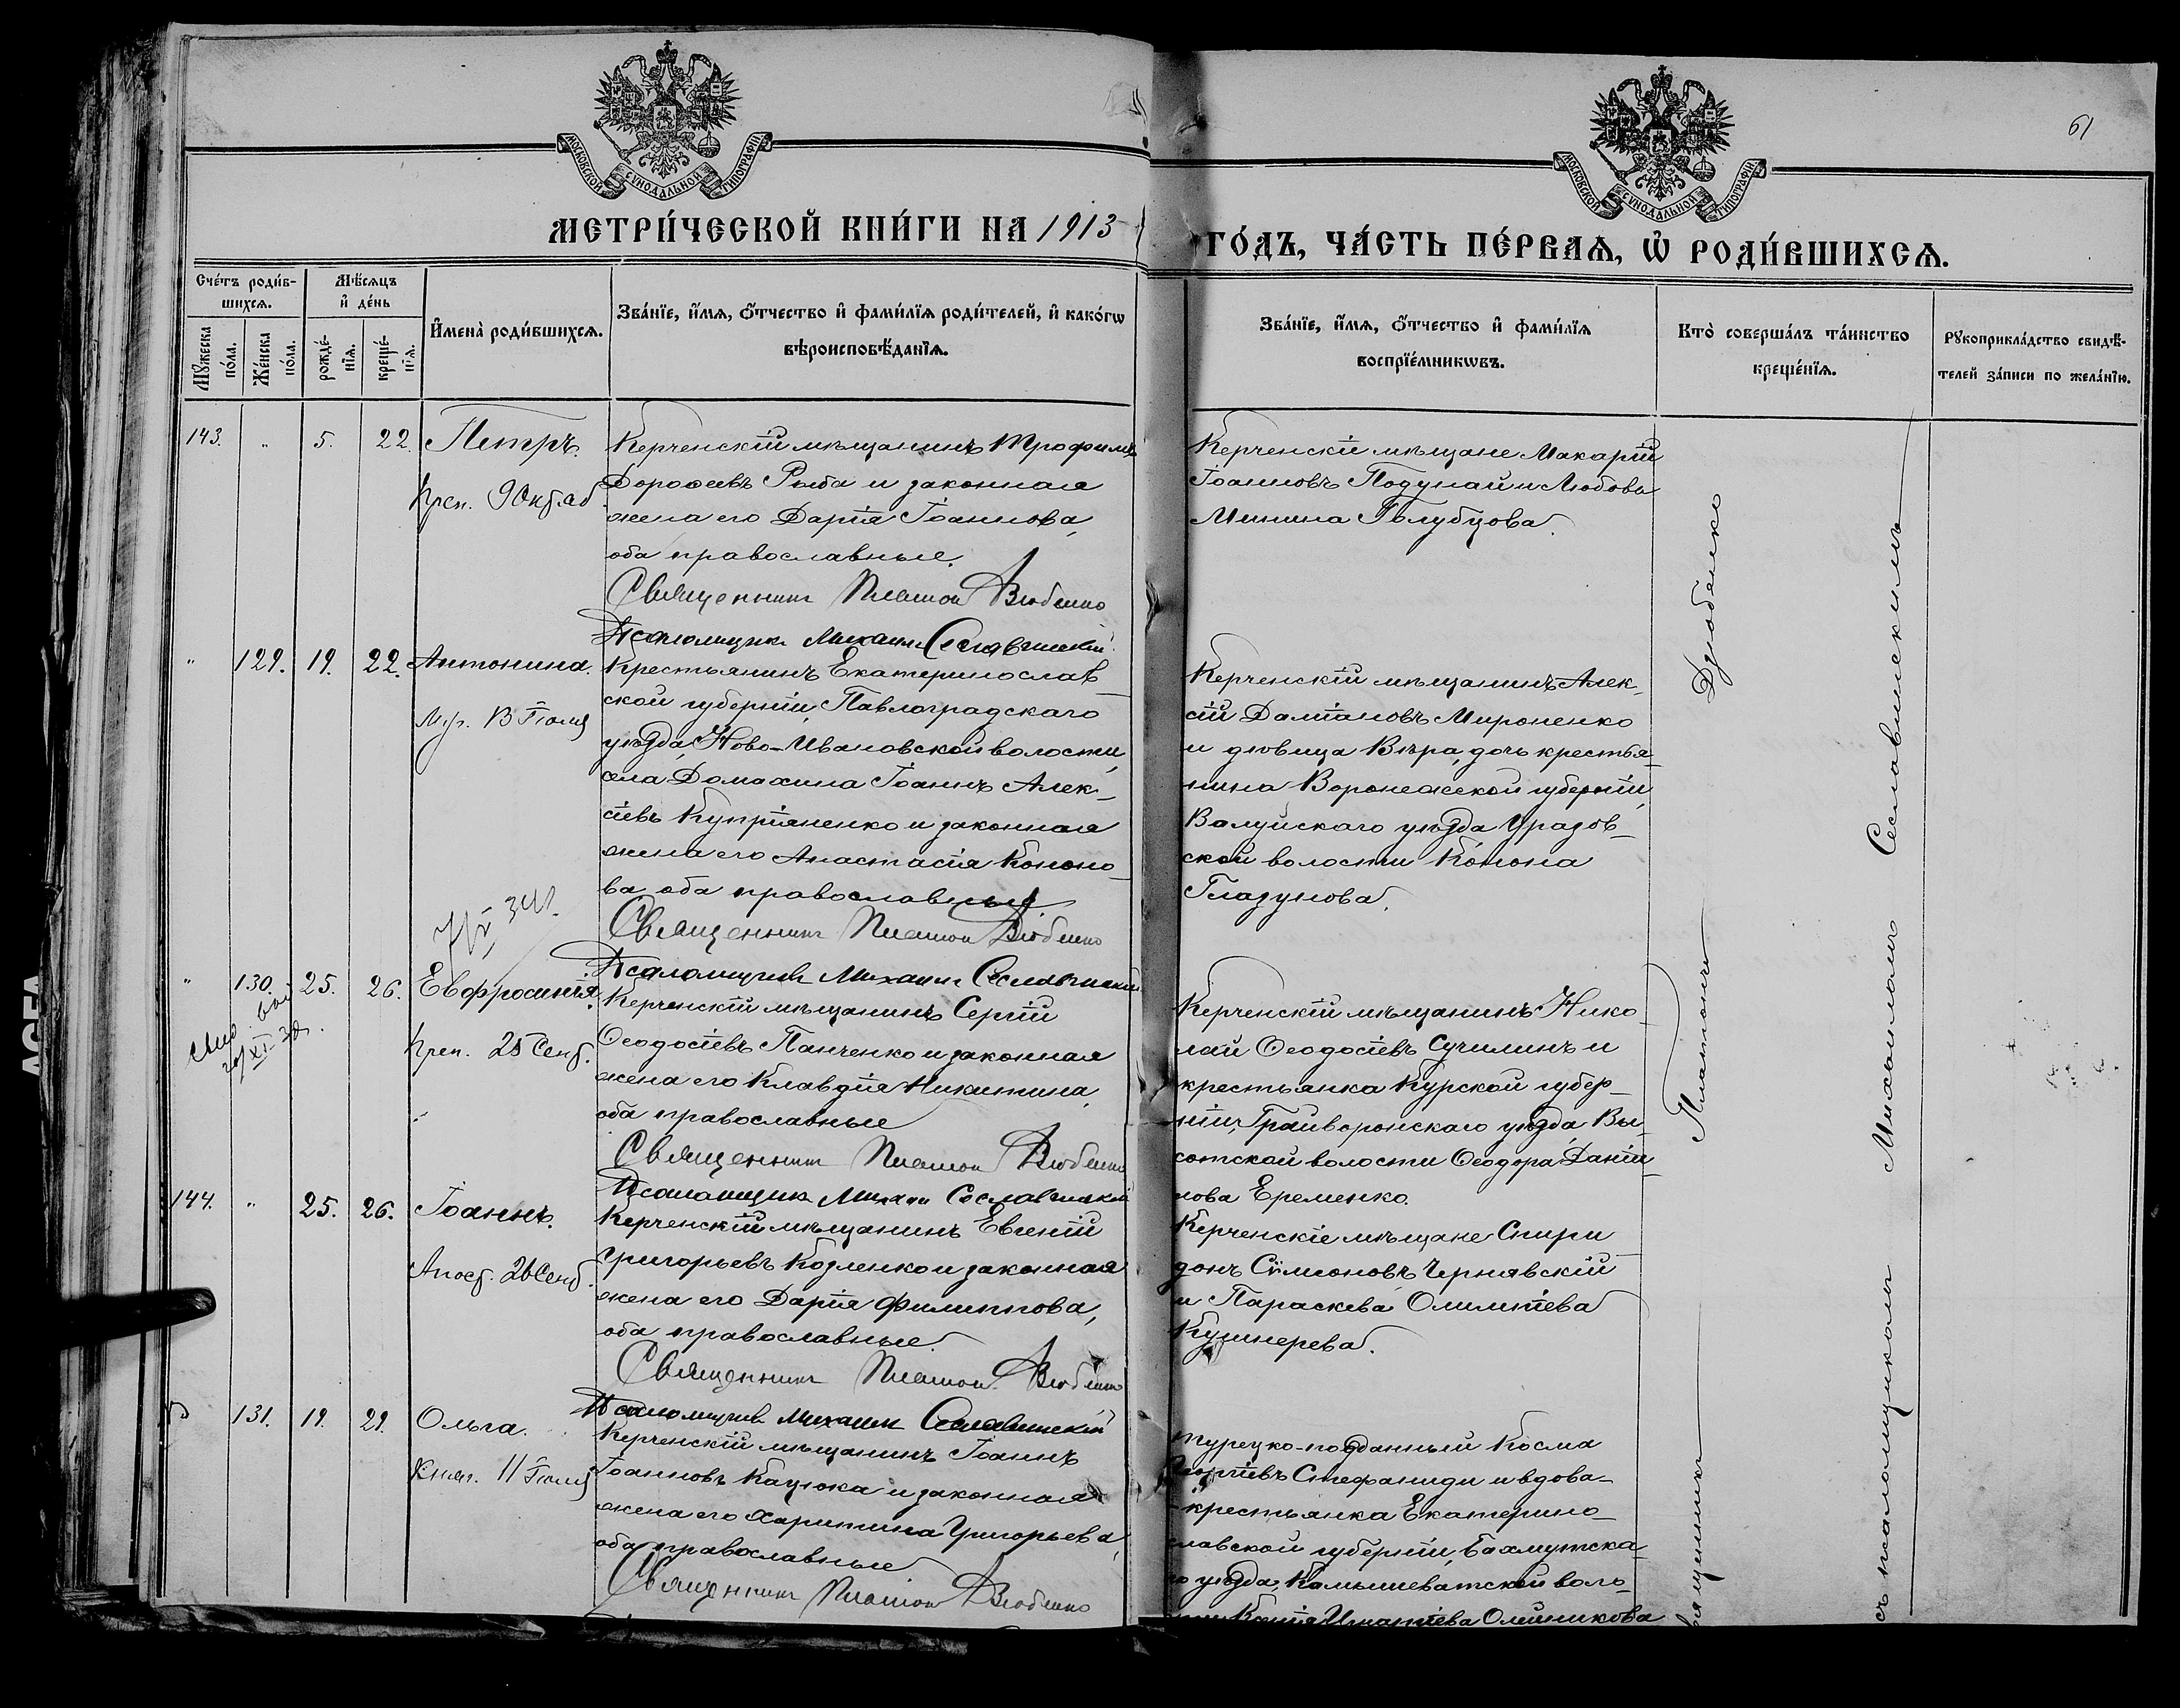 61
МОСКОВСКОЙ СѴНОДАЛЬНОЙ ТИПОГРАФІИ
МОСКОВСКОЙ СѴНОДАЛЬНОЙ ТИПОГРАФІИ
МЕТРИ́ЧЕСКОЙ КНИ́ГИ НА 1913
ГО́ДЪ, ЧА́СТЬ ПЕ́РВАѦ, Ѡ҆ РОДИ́ВШИХСѦ.
Сче́тъ роди́в-
шихсѧ.
Мꙋ́жеска
по́ла.
Же́нска
по́ла.
Мѣ́сѧцъ
и҆ де́нь
рожде́-
нїѧ.
креще́-
нїѧ.
И҆мена̀ роди́вшихсѧ.
Зва́нїе, и҆́мѧ, ѻ҆́тчество и҆ фами́лїѧ роди́телей, и҆ како́гѡ
вѣроисповѣ́данїѧ.
Зва́нїе, и҆́мѧ, ѻ҆́тчество и҆ фами́лїѧ
воспрїе́мникѡвъ.
Кто̀ соверша́лъ та́инство
креще́нїѧ.
Рꙋкоприкла́дство свидѣ́-
телей за́писи по жела́нїю.
143. " 5. 22. Петръ.
Преп. 9 Окт.
Керченскій мѣщанинъ Трофимъ
Дороѳеевъ Рыба и законная
жена его Дарія Іоаннова,
оба православные.
Священникъ Платонъ Дзюбенко
Псаломщикъ Михаилъ Сеславинскій
Керченскіе мѣщане Макарій
Іоанновъ Подунай и Любовь
Минина Голубцова.
" 129. 19. 22. Антонина.
Муч. 13 Іюня
Крестьянинъ Екатеринослав-
ской губерніи, Павлоградскаго
уѣзда, Ново-Ивановской волости,
села Домахина Іоаннъ Алек-
сіевъ Купріяненко и законная
жена его Анастасія Конono-
ва, оба православные.
Священникъ Платонъ Дзюбенко
Псаломщикъ Михаилъ Сеславинскій
Керченскій мѣщанинъ Алек-
сій Даміановъ Мироненко
и дѣвица Вѣра, дочь крестья-
нина Воронежской губерніи,
Валуйскаго уѣзда Уразов-
ской волости Конона
Глазунова.
" 130. 25. 26. Евфросинія.
Преп. 25 Сент.
Керченскій мѣщанинъ Сергій
Ѳеодосіевъ Панченко и законная
жена его Клавдія Никитина,
оба православные
Священникъ Платонъ Дзюбенко
Псаломщикъ Михаилъ Сеславинскій
Керченскій мѣщанинъ Нико-
лай Ѳеодосіевъ Сучилинъ и
крестьянка Курской губер-
ніи, Грайворонскаго уѣзда, Вы-
сотской волости Ѳеодора Даніи-
лова Еременко.
144. " 25. 26. Іоаннъ.
Апост. 26 Сент.
Керченскій мѣщанинъ Евгеній
Григорьевъ Козленко и законная
жена его Дарія Филиппова,
оба православные.
Священникъ Платонъ Дзюбенко
Псаломщикъ Михаилъ Сеславинскій
Керченскіе мѣщане Спири
донъ Сѵмеоновъ Чернявскій
и Параскева
Кушнерева.
131. 19. 29. Ольга.
Княг. 11 Іюля
Керченскій мѣщанинъ Іоаннъ
Іоанновъ Кацюка и законная
жена его Харитина Григорьева,
оба православные
Священникъ Платонъ Дзюбенко
Турецко-подданный Косма
Георгіевъ Стефаниди и вдова-
крестьянка Екатерино-
славской губерніи, Бахмутска-
го уѣзда, Камышеватской воло-
Игнатіева Олейникова
Священникъ Платонъ Дзюбенко
съ псаломщикомъ Михаиломъ Сеславинскимъ
AGFA